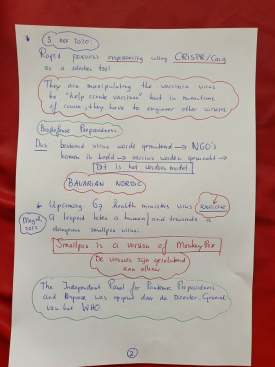 * 3 nov 2020
Rapid poxvirus engineering using CRISPR/Cas9
as a selection tool
They are manipulating the vaccinia virus
to "help create vaccines" but in meantime
of course, they have to engineer other viruses
Biodefense Preparedness
Dus: bestaand virus wordt gemanipuleerd → NGO's
komen in beeld → vaccins worden gemaakt →
Dit is het verdien model
BAVARIAN NORDIC
* Upcoming G7 health ministers virus EXERCISE
May 2022
A leopard bites a human and transmits a
dangerous smallpox virus.
Smallpox is a version of MonkeyPox
De virussen zijn gerelateerd
aan elkaar
The Independent Panel for Pandemic Preparedness
and Response was opgezet door de Director-General
van het WHO.
2